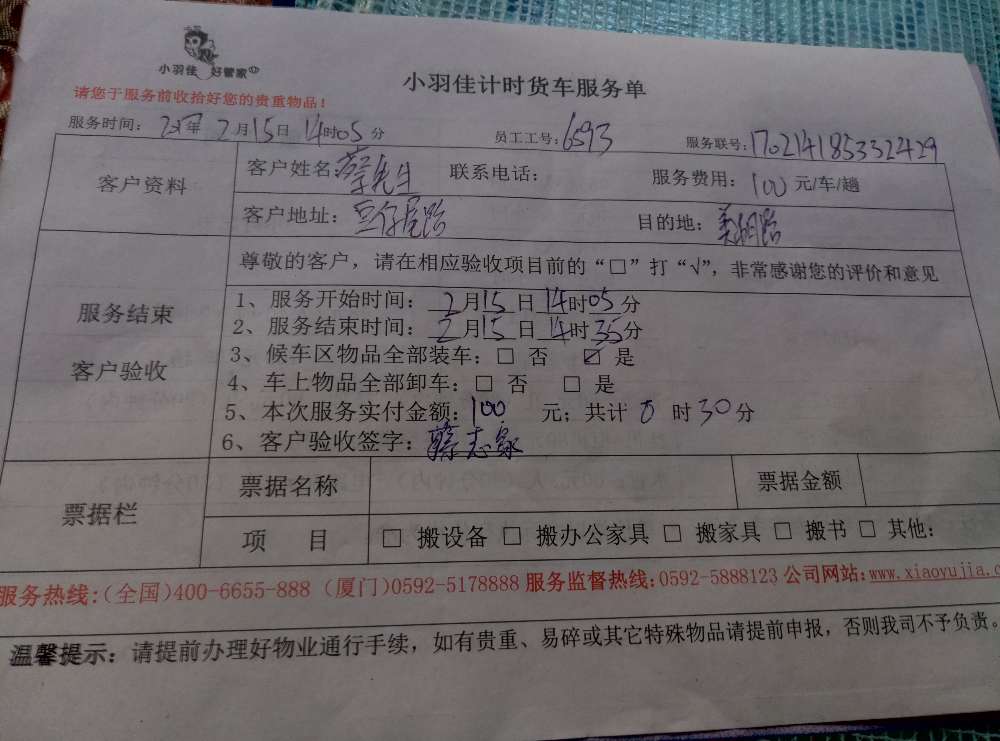 小羽佳 好管家
小羽佳计时货车服务单
请您于服务前收拾好您的贵重物品！
服务时间： 年 2月15日 14时05分 员工工号：6593 服务联号：170214185332429
客户资料
客户姓名：蔡先生 联系电话： 服务费用：100元/车/趟
客户地址：豆仔尾路 目的地：
服务结束
客户验收
尊敬的客户，请在相应验收项目前的“□”打“√”，非常感谢您的评价和意见
1、服务开始时间：2月15日14时05分
2、服务结束时间：2月15日14时35分
3、候车区物品全部装车：□ 否 ☑ 是
4、车上物品全部卸车：□ 否 □ 是
5、本次服务实付金额：100 元；共计 0 时30分
6、客户验收签字：蔡志
票据栏
票据名称 票据金额
项 目 □ 搬设备 □ 搬办公家具 □ 搬家具 □ 搬书 □ 其他：
服务热线：(全国)400-6655-888 (厦门)0592-5178888 服务监督热线：0592-5888123 公司网站：www.xiaoyujia.c
温馨提示：请提前办理好物业通行手续，如有贵重、易碎或其它特殊物品请提前申报，否则我司不予负责。